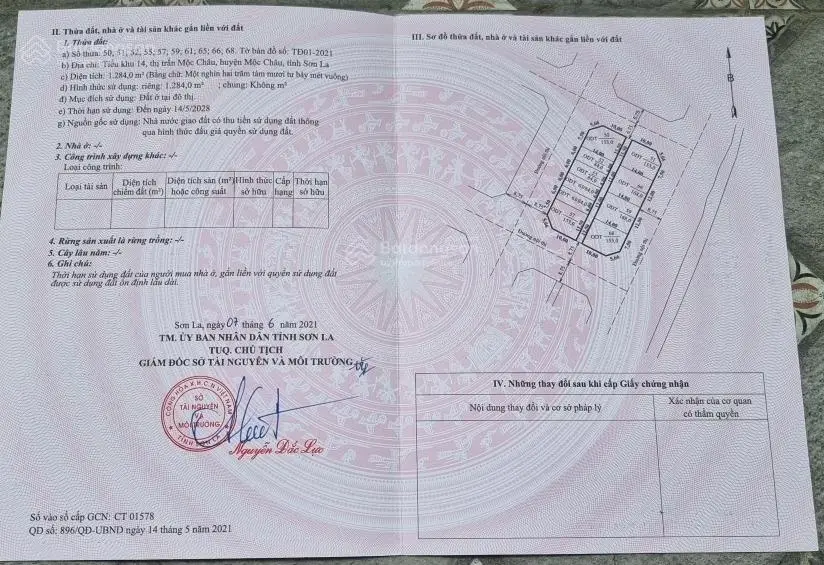 II. Thửa đất, nhà ở và tài sản khác gắn liền với đất
1. Thửa đất:
a) Số thửa: 50, 51, 52, 55, 57, 59; 61; 65; 66; 68. Tờ bản đồ số: TĐ01-2021
b) Địa chỉ: Tiểu khu 14, thị trấn Mộc Châu, huyện Mộc Châu, tỉnh Sơn La
c) Diện tích: 1.284,0 m² (Bằng chữ: Một nghìn hai trăm tám mươi tư bảy mét vuông)
d) Hình thức sử dụng: riêng: 1.284,0 m² ; chung: Không m²
đ) Mục đích sử dụng: Đất ở tại đô thị.
e) Thời hạn sử dụng: Đến ngày 14/5/2028
g) Nguồn gốc sử dụng: Nhà nước giao đất có thu tiền sử dụng đất thông
qua hình thức đấu giá quyền sử dụng đất.
2. Nhà ở: -/-
3. Công trình xây dựng khác: -/-
Loại công trình:
Loại tài sản
Diện tích chiếm đất (m²)
Diện tích sàn (m²) hoặc công suất
Hình thức sở hữu
Cấp hạng
Thời hạn sở hữu
4. Rừng sản xuất là rừng trồng: -/-
5. Cây lâu năm: -/-
6. Ghi chú:
Thời hạn sử dụng đất của người mua nhà ở, gắn liền với quyền sử dụng đất
được sử dụng đất ổn định lâu dài.
Sơn La, ngày 07 tháng 6 năm 2021
TM. ỦY BAN NHÂN DÂN TỈNH SƠN LA
TUQ. CHỦ TỊCH
GIÁM ĐỐC SỞ TÀI NGUYÊN VÀ MÔI TRƯỜNG
SỞ
TÀI NGUYÊN
VÀ
MÔI TRƯỜNG
Nguyễn Đắc Lực
Số vào sổ cấp GCN: CT 01578
QĐ số: 896/QĐ-UBND ngày 14 tháng 5 năm 2021
III. Sơ đồ thửa đất, nhà ở và tài sản khác gắn liền với đất
B
Đường nội thị
Đường nội thị
Đường nội thị
Batdongsan
IV. Những thay đổi sau khi cấp Giấy chứng nhận
Nội dung thay đổi và cơ sở pháp lý
Xác nhận của cơ quan
có thẩm quyền